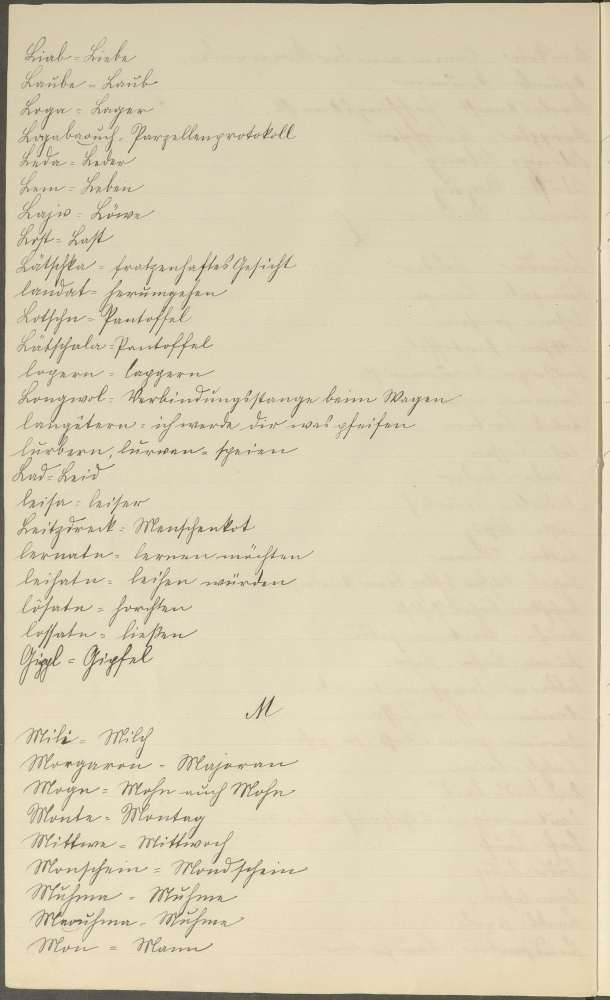 Liab = Liebe
Laube = Laub
Loga = Lager
Logabaouch = Parzellenprotokoll
Leda = Leder
Lem = Leben
Lajw = Löwe
Lost = Last
Lätschka = fratzenhaftes Gesicht
landat = herumgehen
Lotschn = Pantoffel
Lätschala = Pantoffel
lopern = lappern
Longwol = Verbindungsstange beim Wagen
langetern = ich werde dir was pfeifen
lurbern, lurwen = speien
Lad = Leid
leisa = leiser
Leitzdreck = Menschenkot
lernatn = lernen möchten
leihatn = leihen würden
lösatn = horchten
lossatn = ließen
Gippl = Gipfel
M
Mili = Milch
Morgaron = Majoran
Mogn = Mohn auch Mohn
Monte = Montag
Mittwe = Mittwoch
Monschein = Mondschein
Muhma = Muhme
Maouhma = Muhme
Mon = Mann